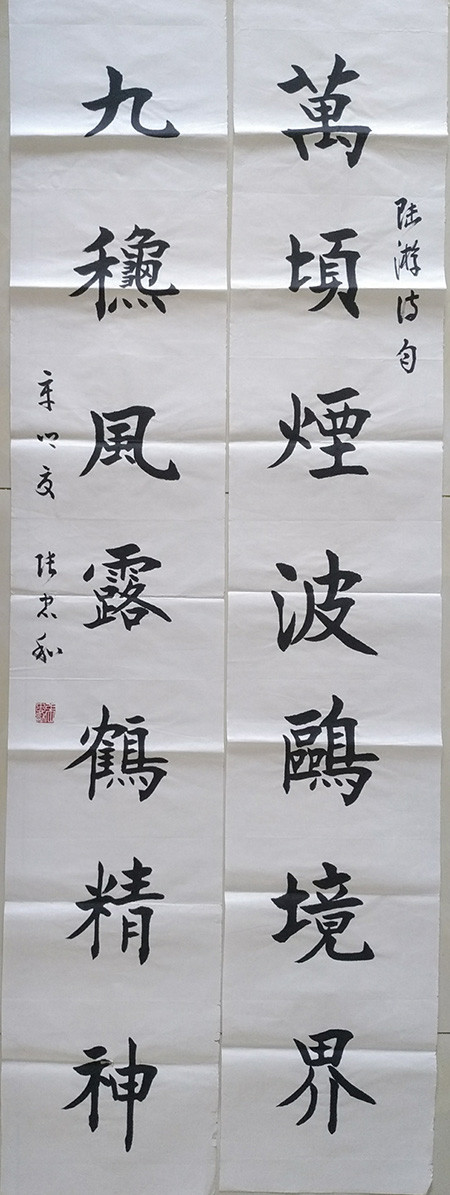 陆游诗句
萬頃煙波鷗境界
九穐風露鶴精神
辛丑夏 张忠和